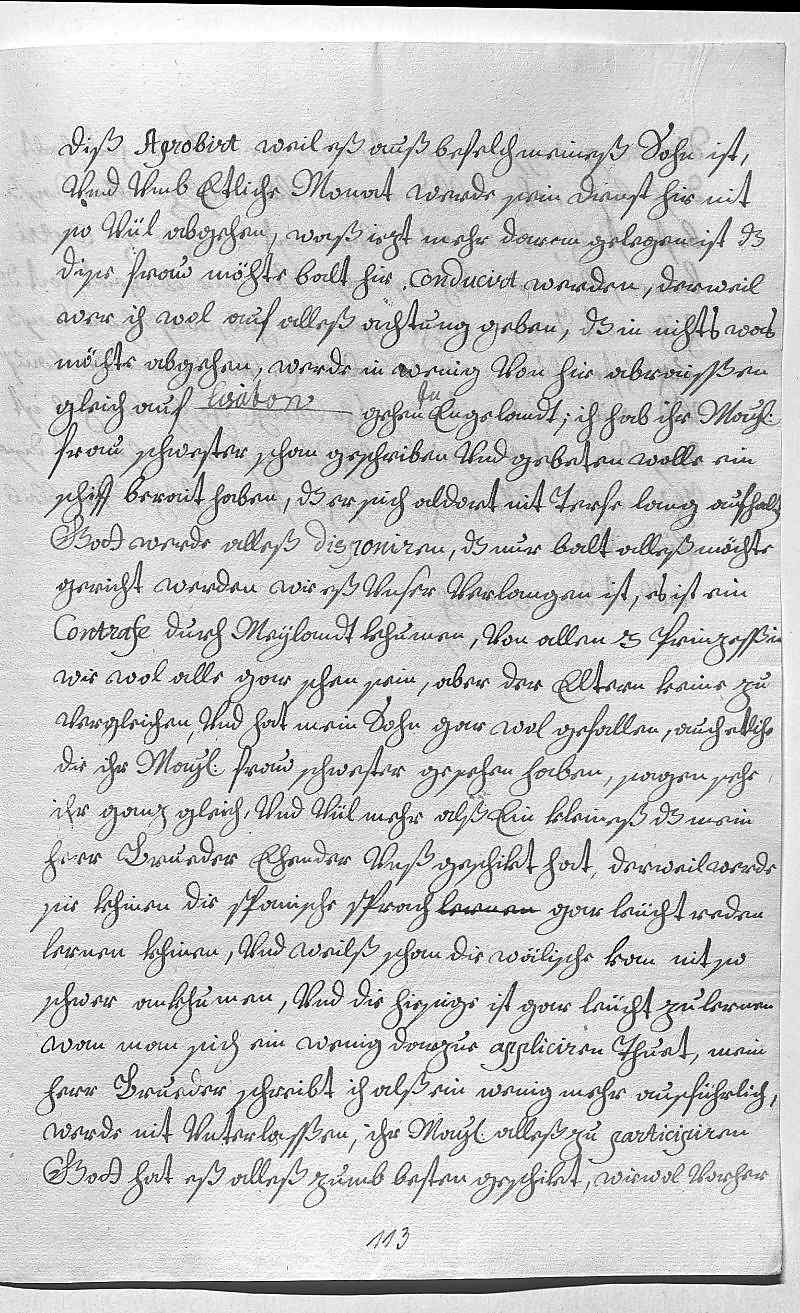 diß Aprobirt weil eß auß befelch meineß Sohn ist,
Vnd Vmb Etliche Monat werde sein dienst hir nit
so Vül abgehen, waß iezt mehr daran gelegen ist dz
dise frau möhte balt hir conducirt werden, derweil
wer ich wol auf alleß achtung geben, dz in nichts was
möchte abgehen, werde in wenig Von hir abraissen
gleich auf gehen In Engelandt; ich hab ihr Mayl:
frau schwester schan geschriben Vnd gebeten wolle ein
schiff berait haben, dz er sich aldort nit Terfe lang aufhalt
Gott werde alleß disponiren, dz nur balt alleß möchte
gericht werden wie eß Vnser Verlangen ist, es ist ein
Contrafe durch Meylandt khumen, Von allen 3 Prinzessin
wie wol alle gar schen sein, aber der Eltern keine zu
Vergleichen, Vnd hat mein Sohn gar wol gefallen, auch etliche
die ihr Mayl: frau schwester gesehen haben, sagen sehe
ihr ganz gleich, Vnd Vül mehr alß Ein kleineß dz mein
herr Brueder Ehender Vnß geschikt hat, derweil werde
sie khinen die spanische sprach lernen gar leücht reden
lernen khinen, Vnd weilß schan die wälische kan nit so
schwer ankhumen, Vnd die hiesige ist gar leücht zu lernen
wan man sich ein wenig darzue appliciren Thuet, mein
herr Brueder schreibt ich alß ein wenig mehr ausführlich,
werde nit Vnterlassen, ihr Mayl: alleß zu participiren
Gott hat eß alleß zumb besten geschikt, wiewol Vorher
113